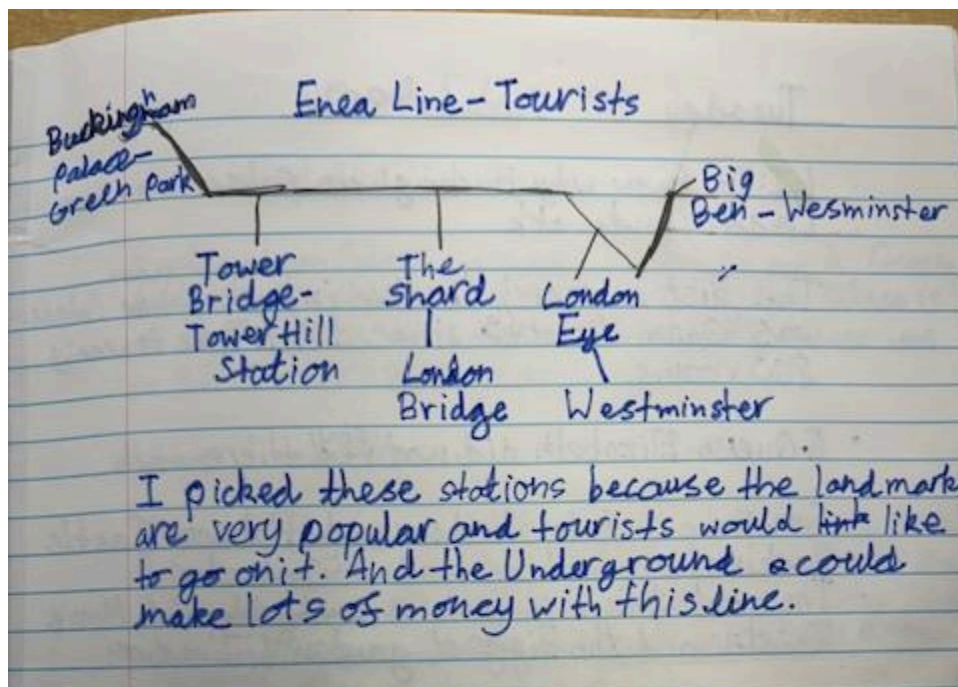 Enea Line - Tourists
Buckingham
Palace-
Green Park
Tower
Bridge-
Tower Hill
Station
The
Shard
London
Bridge
London
Eye
Westminster
Big
Ben - Wesminster
I picked these stations because the landmark
are very popular and tourists would link like
to go on it. And the Underground could
make lots of money with this line.